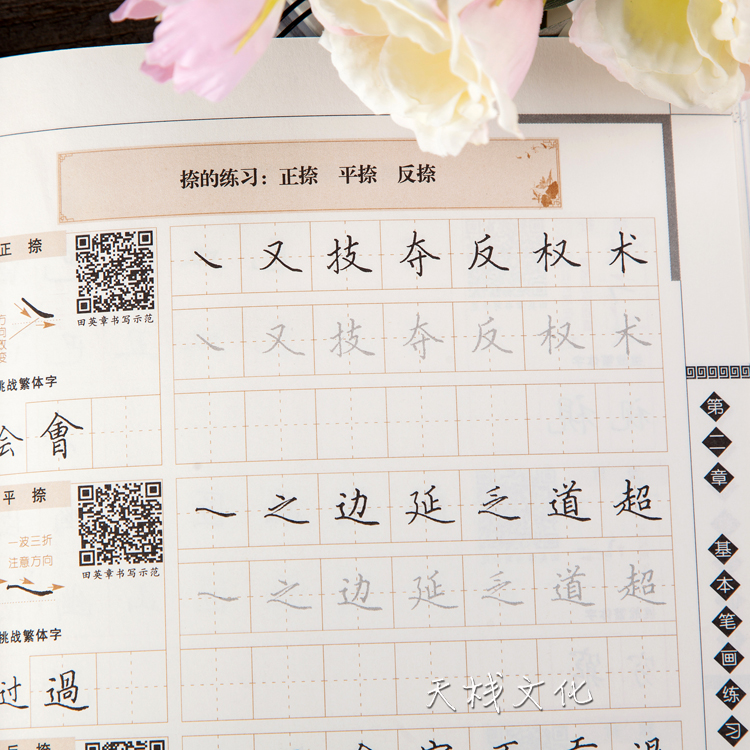 捺的练习：正捺 平捺 反捺
正捺
田英章书写示范
挑战繁体字
会 會
㇏ 又 技 夺 反 权 术
㇏ 又 技 夺 反 权 术
平捺
一波三折
注意方向
田英章书写示范
挑战繁体字
过 過
㇏ 之 边 延 乏 道 超
㇏ 之 边 延 乏 道 超
反捺
第二章
基本笔画练习
天栈文化